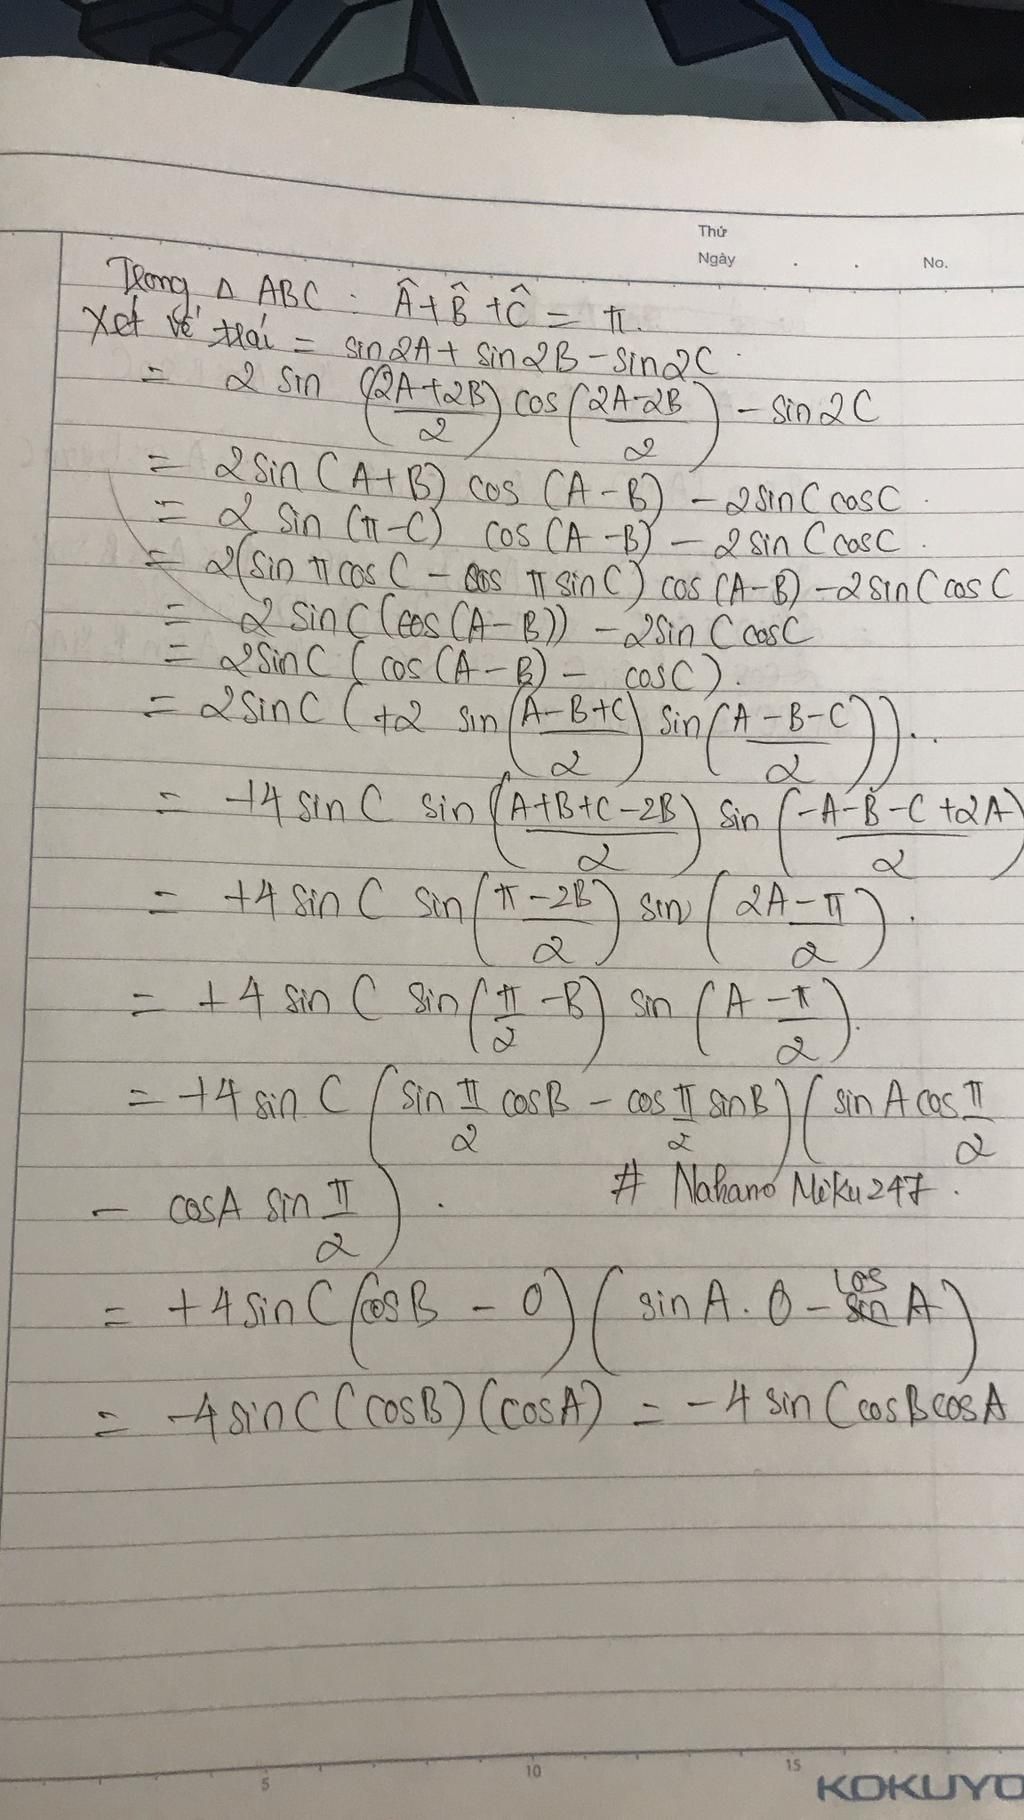 Thứ
Ngày . . No.
Trong Δ ABC : Â + B̂ + Ĉ = π.
Xét vế trái = sin2A + sin2B - sin2C
= 2 sin ((2A+2B)/2) cos ((2A-2B)/2) - sin2C
= 2sin (A+B) cos (A-B) - 2sinC cosC.
= 2 sin (π-C) cos (A-B) - 2sinC cosC.
= 2(sin π cosC - cos π sinC) cos (A-B) - 2sinC cosC
= 2sinC (cos(A-B)) - 2sinC cosC
= 2sinC (cos(A-B) - cosC).
= 2sinC (+2 sin ((A-B+C)/2) sin ((A-B-C)/2))..
= +4 sinC sin ((A+B+C-2B)/2) sin ((-A-B-C+2A)/2)
= +4 sinC sin ((π-2B)/2) sin ((2A-π)/2).
= +4 sinC sin (π/2 - B) sin (A - π/2).
= +4 sinC (sin π/2 cosB - cos π/2 sinB) (sinA cos π/2
- cosA sin π/2). # Nahano Miku247.
= +4 sinC (cosB - 0) (sinA.0 - cosA)
= -4 sinC (cosB) (cosA) = -4 sinC cosB cosA
5 10 15
KOKUYO